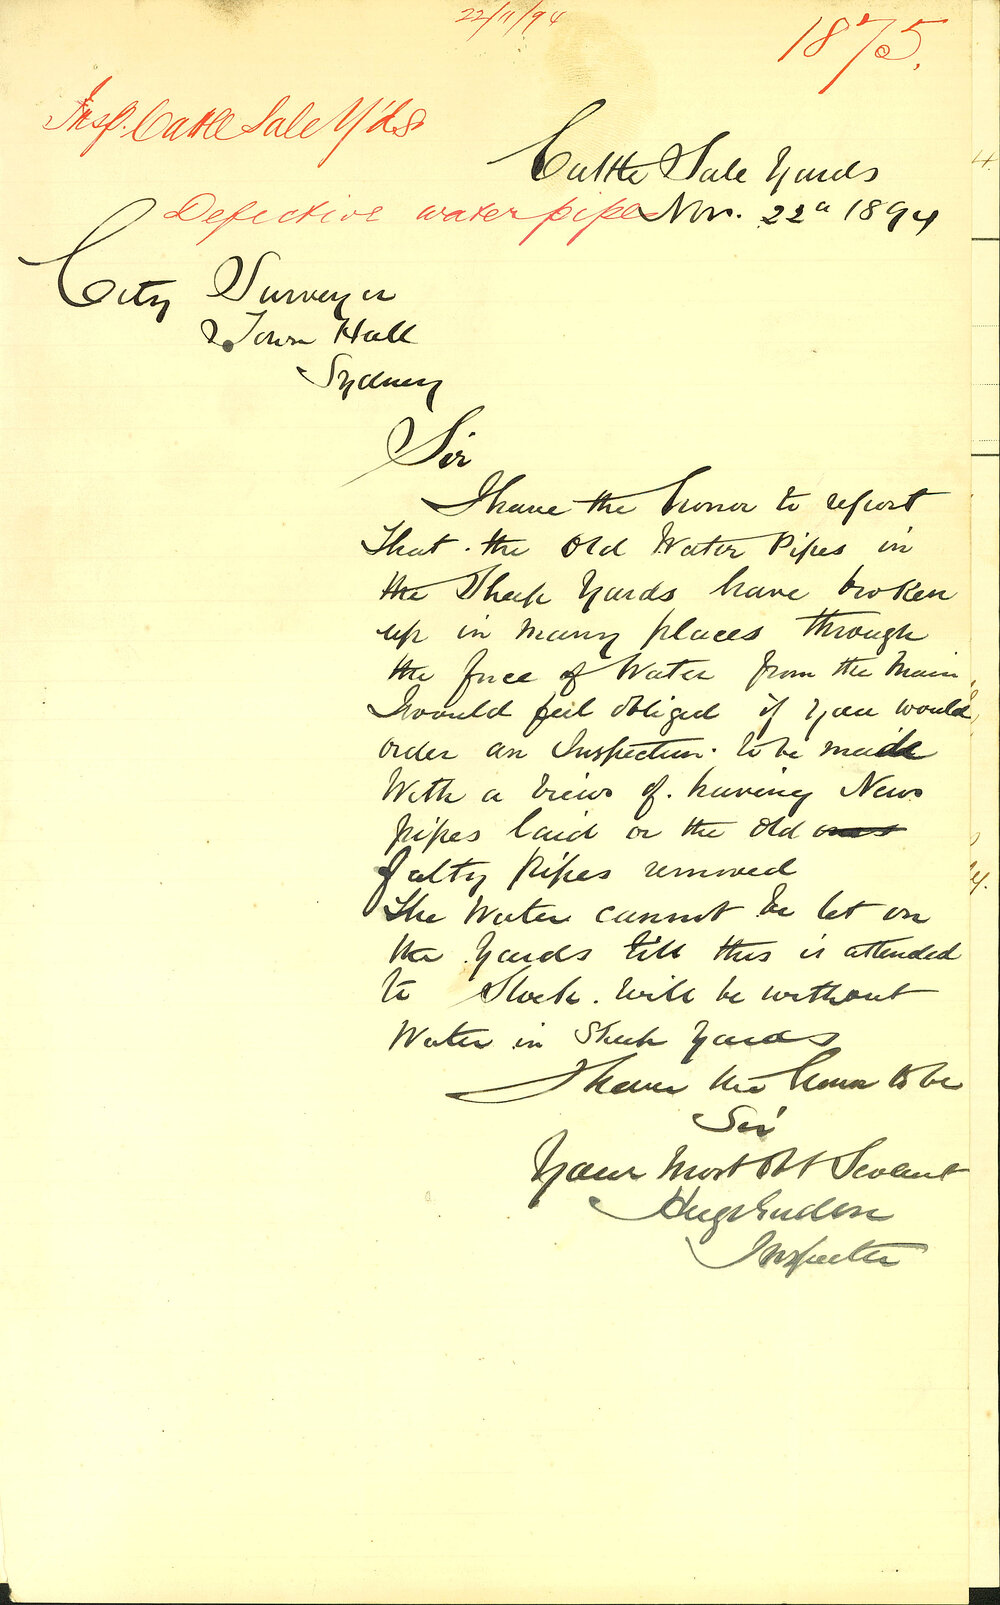 22/11/94
1875.
Insp. Cattle Sale Y'ds
Cattle Sale Yards
Defective water pipes
Nov. 22d 1894
City Surveyor
Town Hall
Sydney
Sir
I have the honor to report
That the Old Water Pipes in
the Sheep Yards have broken
up in many places through
the force of Water from the Main
I would feel obliged if you would
order an Inspection to be made
With a view of having New
pipes laid or the old ones
falty pipes removed
The Water cannot be let on
the Yards till this is attended
to Stock will be without
Water in Sheep Yards
I have the honor to be
Sir
Your Most Obt Servant
Inspector